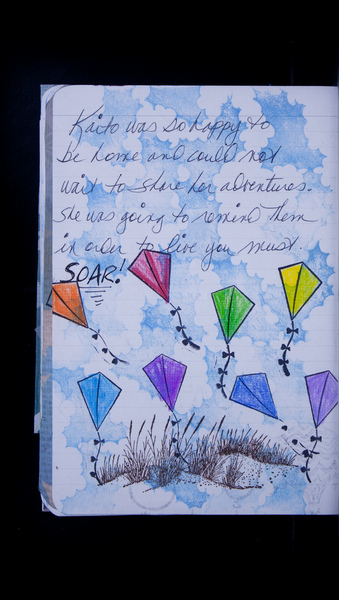 Kaito was so happy to
be home and could not
wait to share her adventures.
She was going to remind them
in order to live you must.
SOAR!